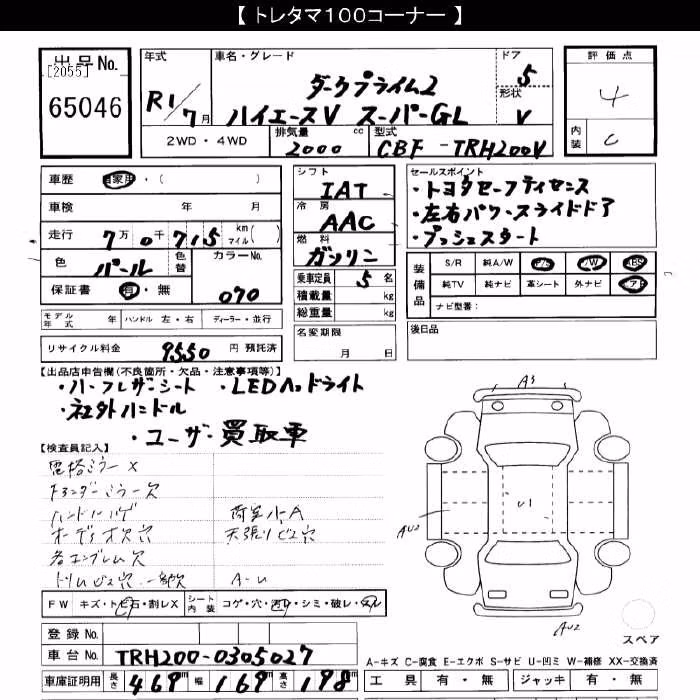 【 トレタマ100コーナー 】
出品No.
[2055]
65046
年式
R1/7月
車名・グレード
ダークプライム2
ハイエースV スーパーGL
ドア
5
形状
V
評価点
4
内装
C
2WD・4WD
排気量
2000 cc
型式
CBF-TRH200V
車歴 自家用・( )
車検 年 月
走行 7万0千715 km マイル( )
色 パール 色替
カラーNo.
070
保証書 有・無
モデル年式 年
ハンドル 左・右
ディーラー・並行
リサイクル料金 9550 円 預託済
シフト
IAT
冷房
AAC
燃料
ガソリン
乗車定員 5 名
積載量 kg
総重量 kg
名変期限
月 日
セールスポイント
・トヨタセーフティセンス
・左右パワースライドドア
・プッシュスタート
装備品
S/R 純A/W P/S P/W ABS
純TV 純ナビ 革シート 外ナビ エアB
ナビ型番:
後日品
【出品店申告欄(不良箇所・欠品・注意事項等)】
・ハーフレザーシート ・LEDヘッドライト
・社外ハンドル
・ユーザー買取車
【検査員記入】
電格ミラーX
アンダーミラー欠
ハンドルハゲ 荷室小A
オーディオ欠穴 天張リビス穴
各エンブレム欠
トリムビス穴 一部欠 A-U
FW キズ・トビ石・割レX
シート内装 コゲ・穴・汚レ・シミ・破レ・スレ
登録No.
車台No. TRH200-0305027
車庫証明用 長さ 469 m 幅 169 m 高さ 198 m
A3
U1
AU2
AU2
スペア
A-キズ C-腐食 E-エクボ S-サビ U-凹ミ W-補修 XX-交換済
工具 有・無 ジャッキ 有・無